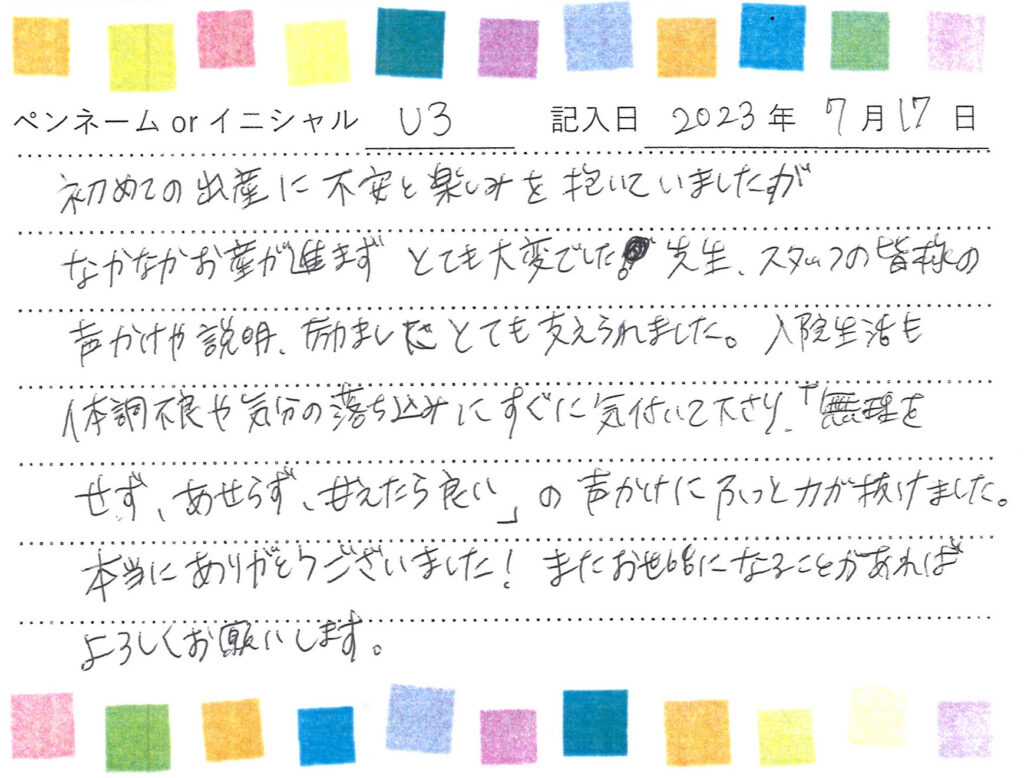 ペンネーム or イニシャル U3 記入日 2023年 7月17日
初めての出産に不安と楽しみを抱いていましたが
なかなかお産が進まず とても大変でした。先生、スタッフの皆様の
声かけや説明、励ましに とても支えられました。入院生活も
体調不良や気分の落ち込みにすぐに気付いて下さり、「無理を
せず、あせらず、甘えたら良い」の声かけにふっと力が抜けました。
本当にありがとうございました！またお世話になることがあれば
よろしくお願いします。